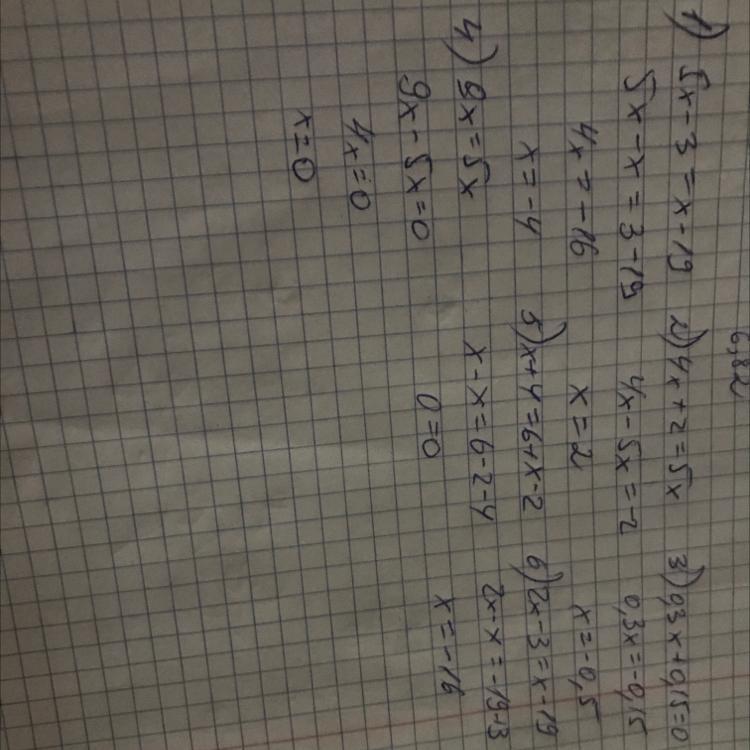 6,82
1) 5x - 3 = x - 19
5x - x = 3 - 19
4x = -16
x = -4
2) 4x + 2 = 5x
4x - 5x = -2
x = 2
3) 0,3x + 0,15 = 0
0,3x = -0,15
x = -0,5
4) 9x = 5x
9x - 5x = 0
4x = 0
x = 0
5) x + 4 = 6 + x - 2
x - x = 6 - 2 - 4
0 = 0
6) 2x - 3 = x - 19
2x - x = -19+3
x = -16